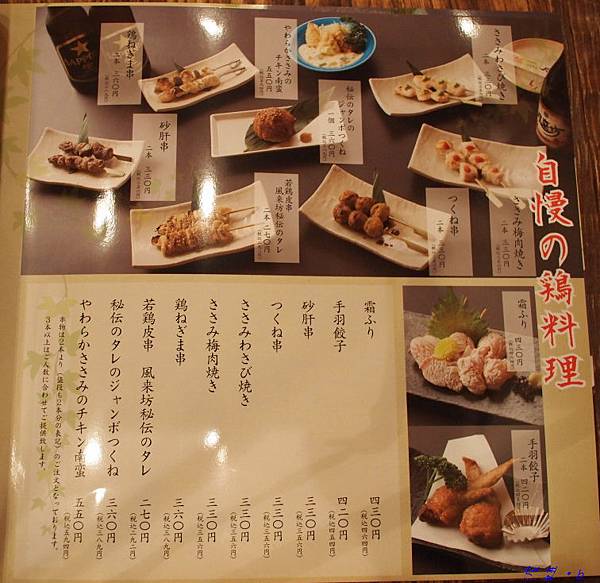 自慢の鶏料理
鶏ねぎま串
二本 三六〇円
やわらかささみの
チキン南蛮
五五〇円
ささみわさび焼き
二本 三三〇円
秘伝のタレの
ジャンボつくね
一個 三六〇円
砂肝串
二本 三三〇円
若鶏皮串
風来坊秘伝のタレ
二本 二七〇円
つくね串
二本 三三〇円
ささみ梅肉焼き
二本 三三〇円
霜ふり
四三〇円
手羽餃子
二本 四二〇円
霜ふり 四三〇円
(税込四六四円)
手羽餃子 四二〇円
(税込四五四円)
砂肝串 三三〇円
(税込三五六円)
つくね串 三三〇円
(税込三五六円)
ささみわさび焼き 三三〇円
(税込三五六円)
ささみ梅肉焼き 三三〇円
(税込三五六円)
鶏ねぎま串 三六〇円
(税込三八九円)
若鶏皮串 風来坊秘伝のタレ 二七〇円
(税込二九二円)
秘伝のタレのジャンボつくね 三六〇円
(税込三八九円)
やわらかささみのチキン南蛮 五五〇円
(税込五九四円)
串物は2本より(値段も2本分の表記)のご注文となっております。
3本以上はご人数に合わせてご提供致します。